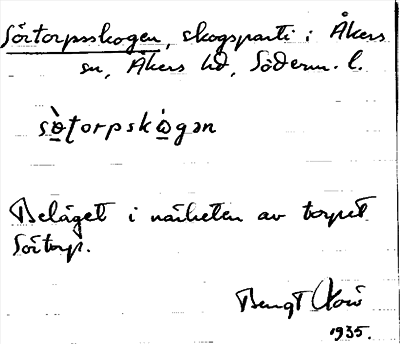 Sörtorpsskogen, skogsparti i Åkers
sn, Åkers hd, Söderm. l.
sø̀ṭorpskò̱gən
Beläget i närheten av torpet
Sörtorp.
Bengt
1935.